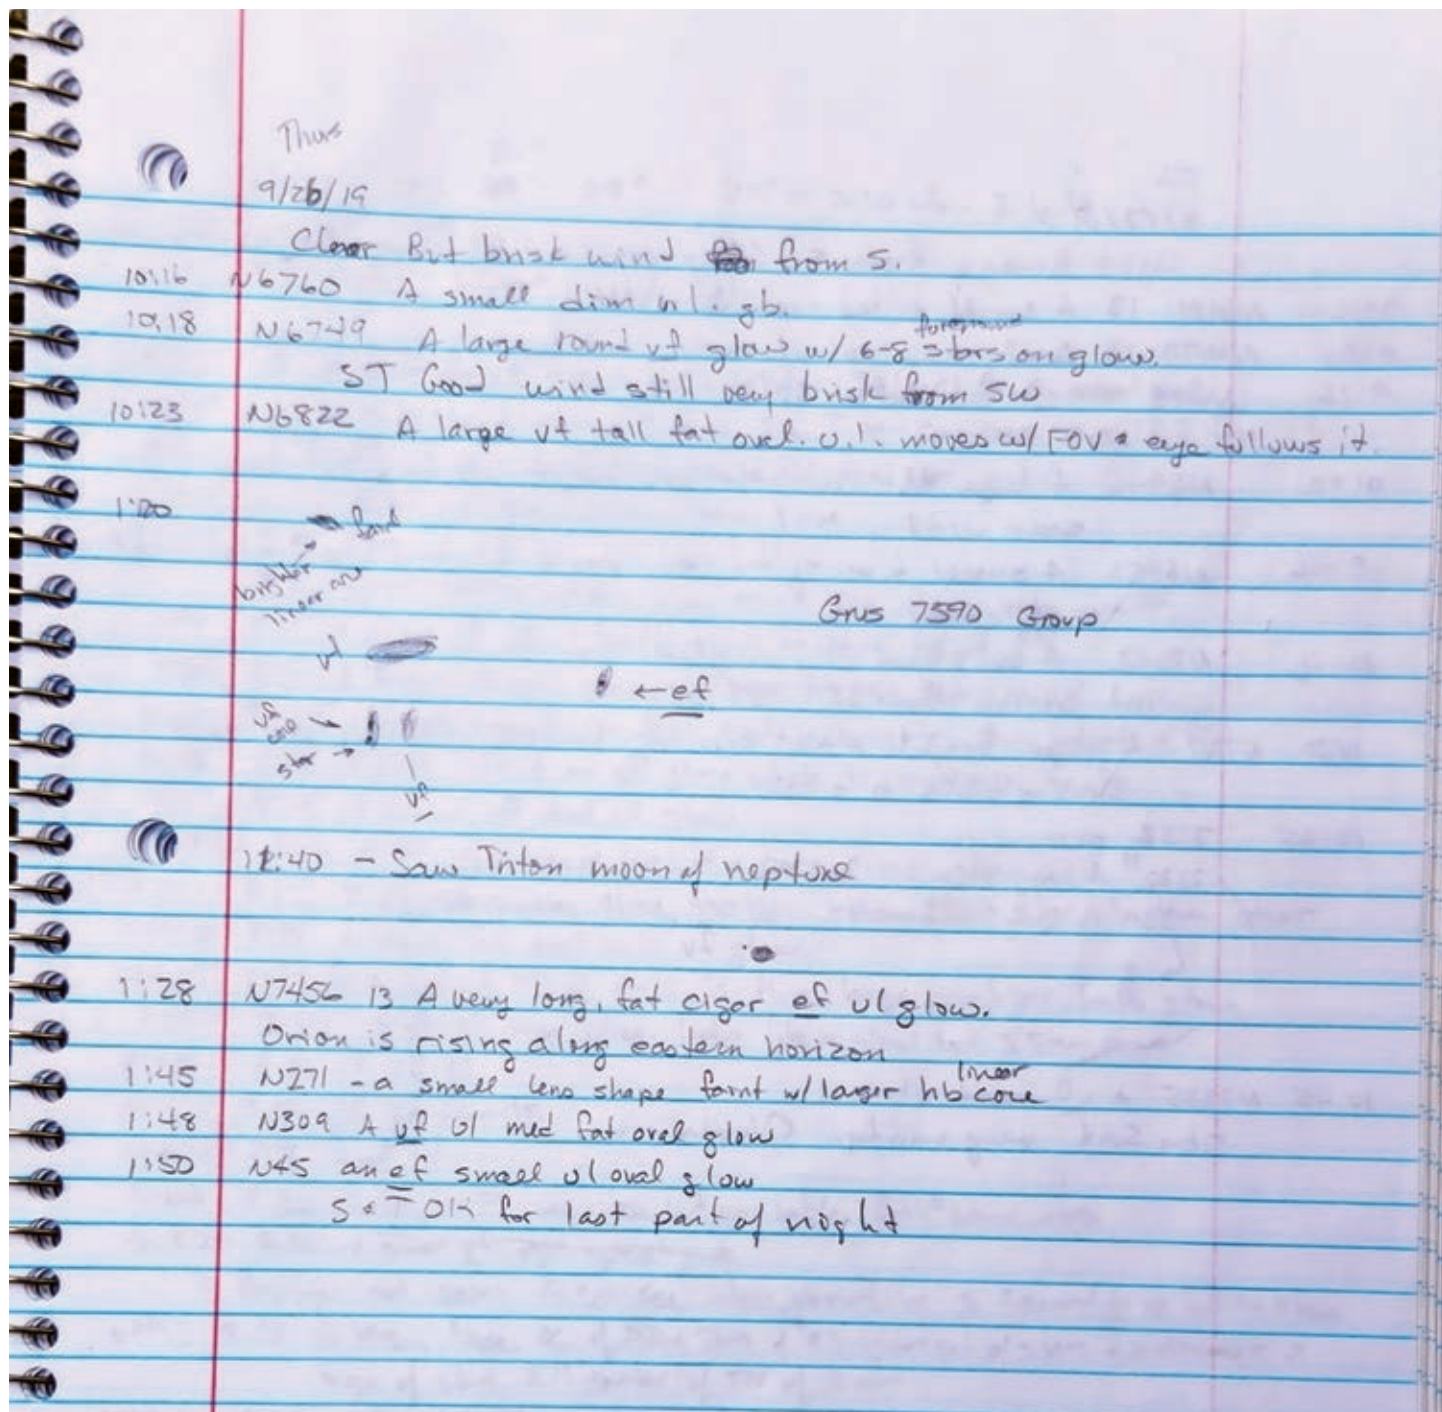 Thurs
9/26/19
Clear But brisk wind from S.
10:16 N6760 A small dim u.l. gb.
10:18 N6749 A large round vf glow w/ 6-8 foreground stars on glow.
ST Good wind still very brisk from SW
10:23 N6822 A large vf tall fat oval. u.l. moves w/ FOV & eye follows it.
1:20
faint
brighter
linear
Grus 7590 Group
vf
← ef
core
star →
vf
:40 - Saw Triton moon of neptune
1:28 N7456 13 A very long, fat cigar ef ul glow.
Orion is rising along eastern horizon
1:45 N271 - a small lens shape faint w/ larger hb linear core
1:48 N309 A vf ul med fat oval glow
1:50 N45 an ef small ul oval glow
S & T OK for last part of night